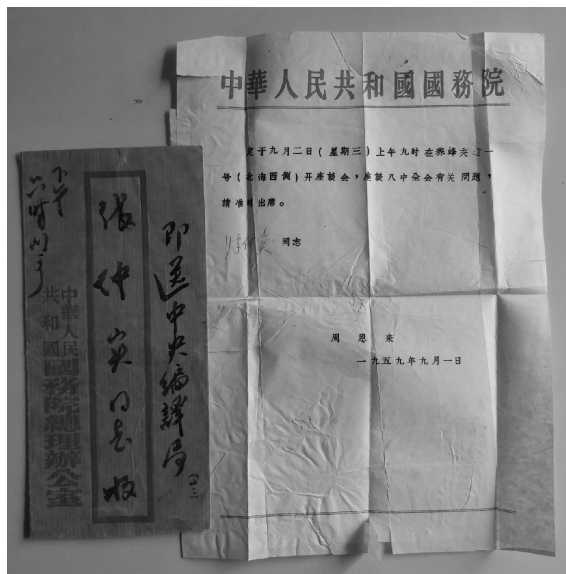 中華人民共和國國務院
定于九月二日(星期三)上午九时在养蜂夹道一
号(北海西侧)开座談会,座談八中全会有关问题,
請准时出席。
张仲实 同志
周恩来
一九五九年九月一日
即送中央编譯局
張仲实同志收
下午
中華人民
共和國國務院總理辦公室